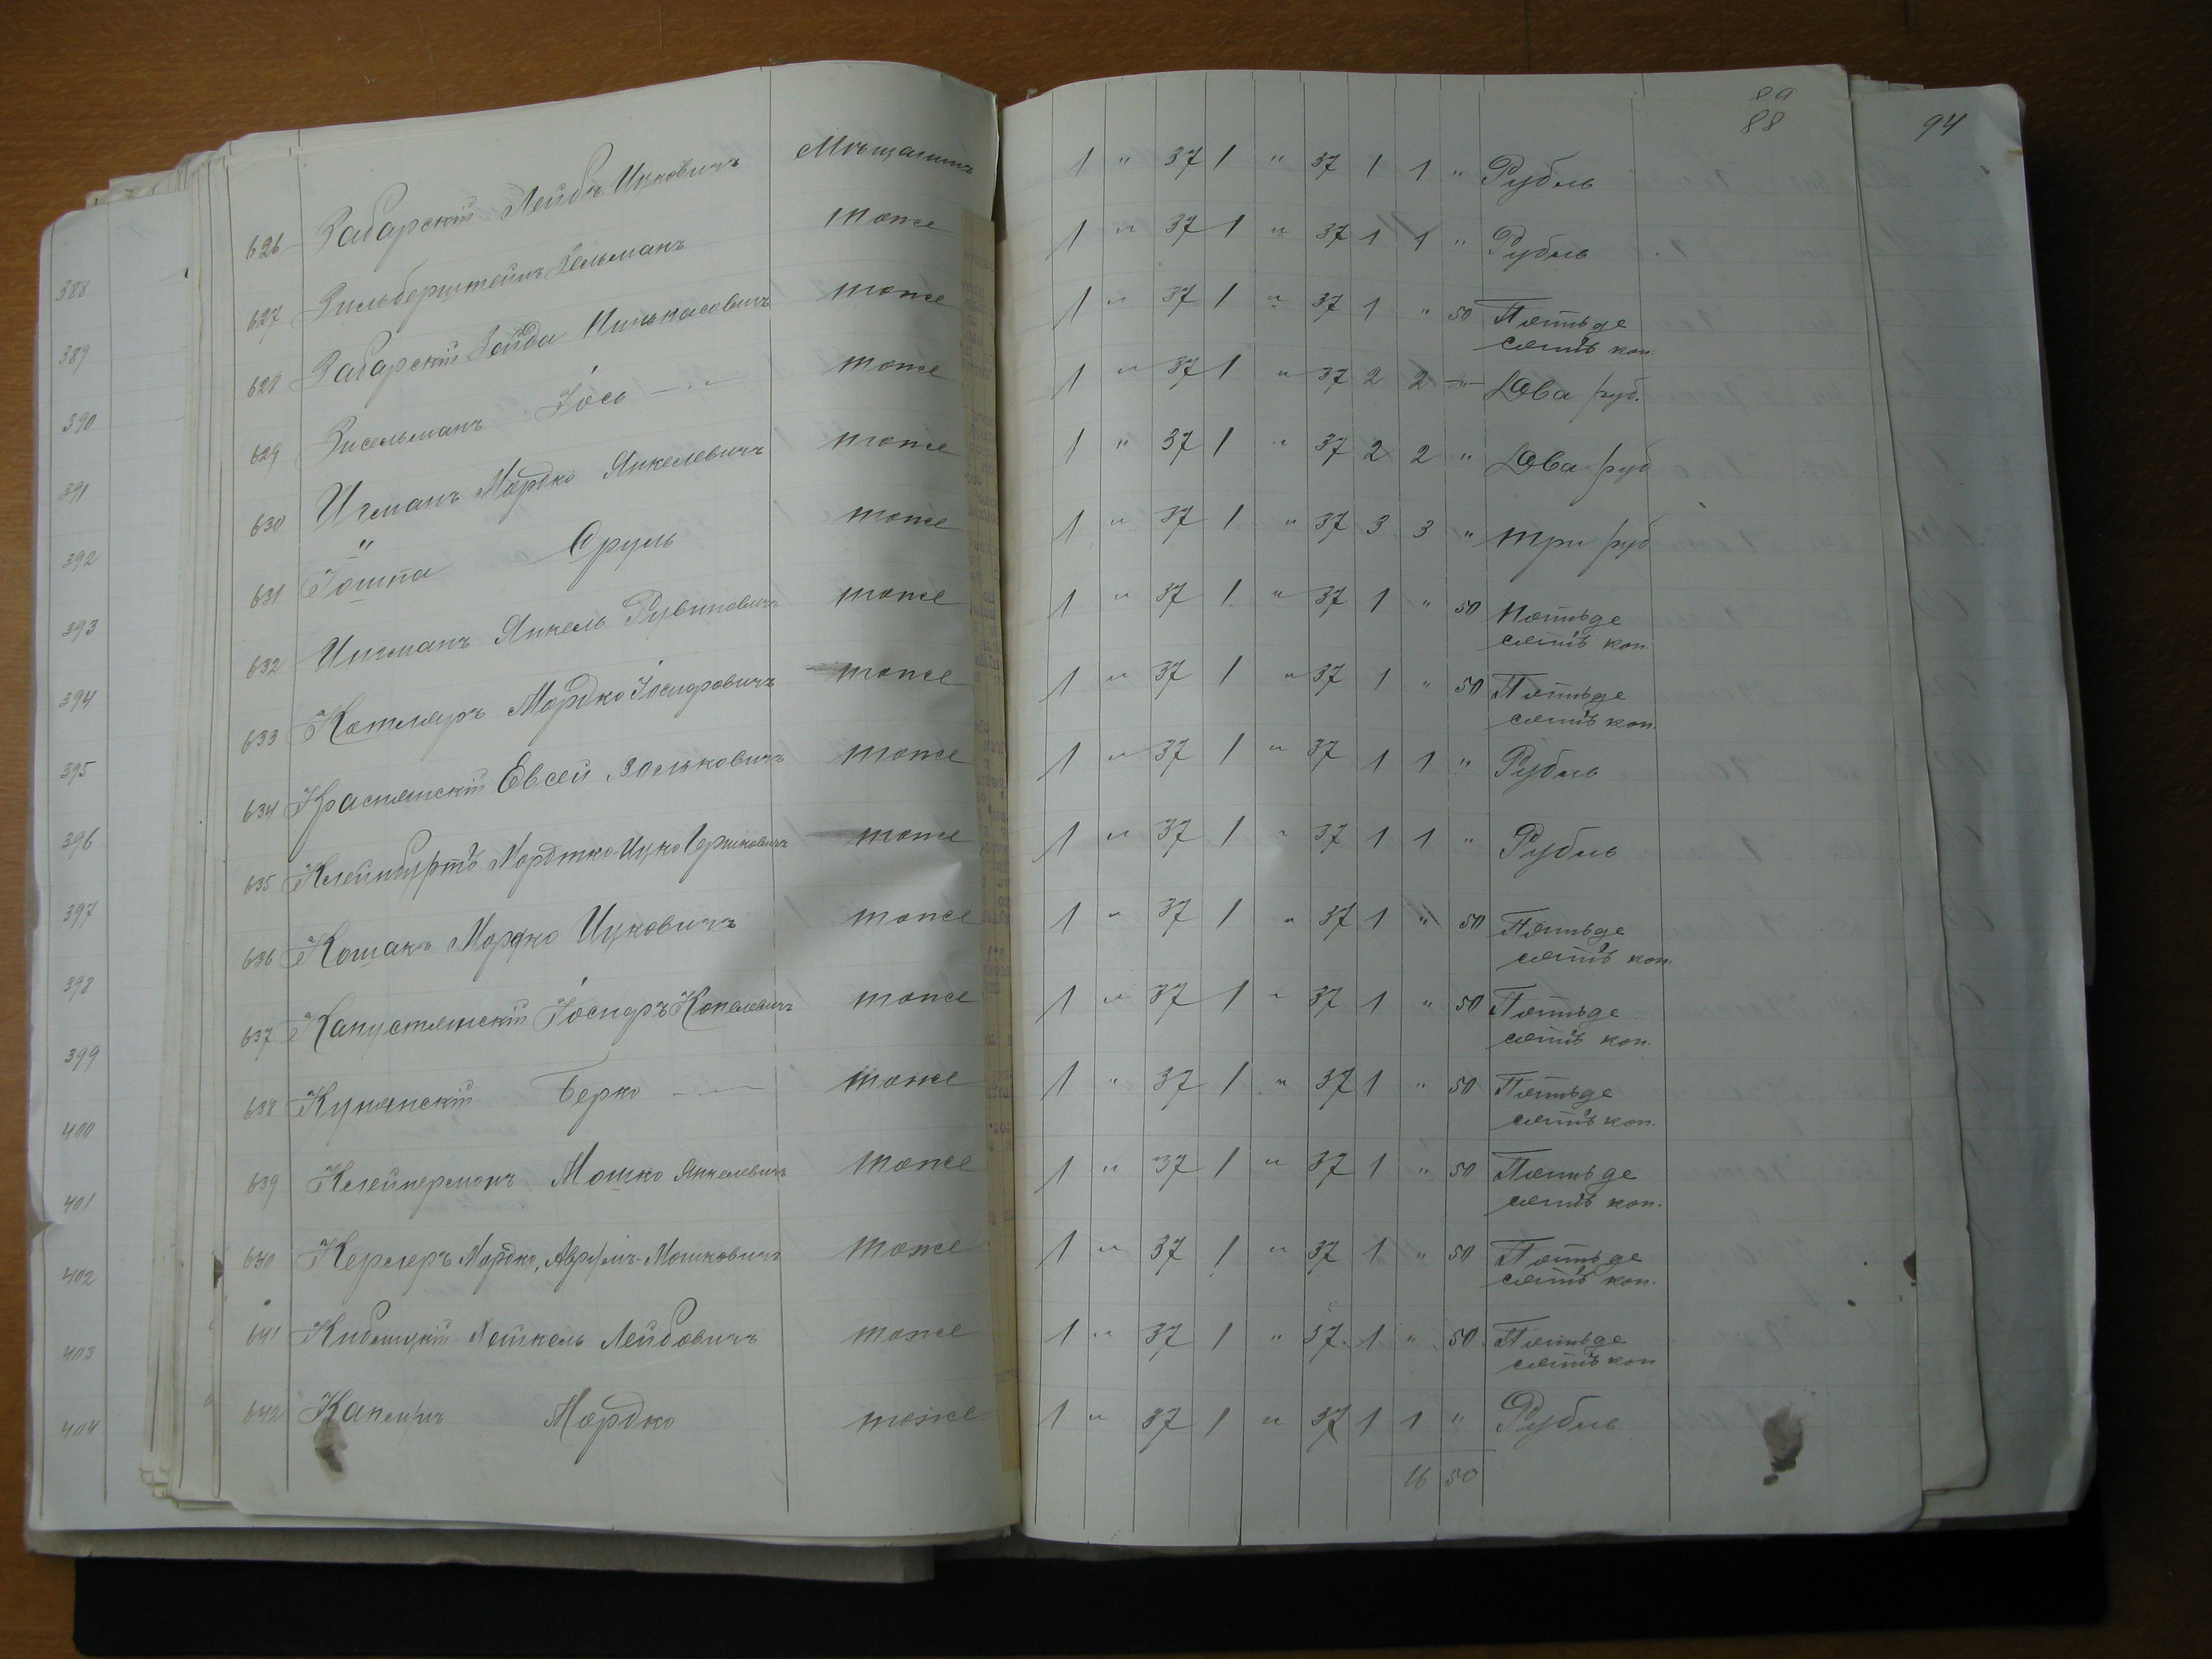 89
88
94
626 Забарскій Лейбъ Ицковичъ Мѣщанинъ 1 " 37 1 " 37 1 1 " Рубль
627 Зильберштейнъ Зельманъ тоже 1 " 37 1 " 37 1 1 " Рубль
628 Забарскій Зейда Пинькасовичъ тоже 1 " 37 1 " 37 1 " 50 Пятьде
сятъ коп.
629 Зисельманъ Іось — " — тоже 1 " 37 1 " 37 2 2 " Два руб.
630 Игманъ Мордко Янкелевичъ тоже 1 " 37 1 " 37 2 2 " Два руб
631 " Сруль тоже 1 " 37 1 " 37 3 3 " три руб
632 Янкель Рувиновичъ тоже 1 " 37 1 " 37 1 " 50 Пятьде
сятъ коп.
633 Котляръ Мордко Іосифовичъ тоже 1 " 37 1 " 37 1 " 50 Пятьде
сятъ коп.
634 Краснянскій Евсей тоже 1 " 37 1 " 37 1 1 " Рубль
635 Мордтко-Ицко Гершковичъ тоже 1 " 37 1 " 37 1 1 " Рубль
636 Кошакъ Мордко Ицковичъ тоже 1 " 37 1 " 37 1 " 50 Пятьде
сятъ коп.
637 Капустянскій Іосифъ Копелевичъ тоже 1 " 37 1 " 37 1 " 50 Пятьде
сятъ коп.
638 Купянскій Берко — " — тоже 1 " 37 1 " 37 1 " 50 Пятьде
сятъ коп.
639 Клейнерманъ Мошко Янкелевичъ тоже 1 " 37 1 " 37 1 " 50 Пятьде
сятъ коп.
640 Керлеръ Мордко, Аврумъ-Мошковичъ тоже 1 " 37 1 " 37 1 " 50 Пятьде
сятъ коп.
641 Лейбовичъ тоже 1 " 37 1 " 37 1 " 50 Пятьде
сятъ коп
642 Мордко тоже 1 " 37 1 " 37 1 1 " Рубль
16 50
388
389
390
391
392
393
394
395
396
397
398
399
400
401
402
403
404